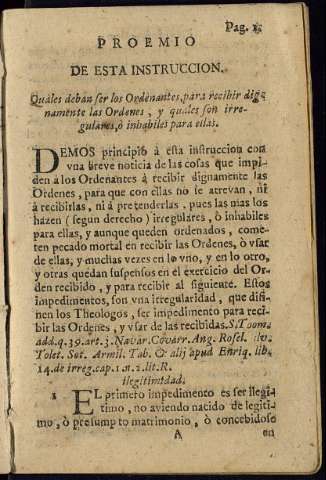 Pag. 1.
PROEMIO
DE ESTA INSTRUCCION.
Quales deban ser los Ordenantes, para recibir dig-
namente las Ordenes, y quales son irre-
gulares, ò inhabiles para ellas.
DEMOS principiò à esta instruccion con
vna breve noticia de las cosas que impi-
den à los Ordenantes à recibir dignamente las
Ordenes, para que con ellas no se atrevan, ni
à recibirlas, ni à pretenderlas, pues las mas los
hazen (segun derecho) irregulares, ò inhabiles
para ellas, y aunque queden ordenados, come-
ten pecado mortal en recibir las Ordenes, ò vsar
de ellas, y muchas vezes en lo vno, y en lo otro,
y otras quedan suspensos en el exercicio del Or-
den recibido, y para recibir al siguiente. Estos
impedimentos, son vna irregularidad, que difi-
nen los Theologos, ser impedimento para reci-
bir las Ordenes, y vsar de las recibidas. S. Toom.
add. q. 39. art. 3. Navar. Covarr. Ang. Rosel.
Tolet. Sot. Armil. Tab. & alij apud Enriq. lib.
14. de irreg. cap. 1. n. 2. lit. R.
Ilegitimidad.
1 EL primero impedimento es ser ilegi-
timo, no aviendo nacido de legiti-
mo, ò presumpto matrimonio, ò concebidose
A en